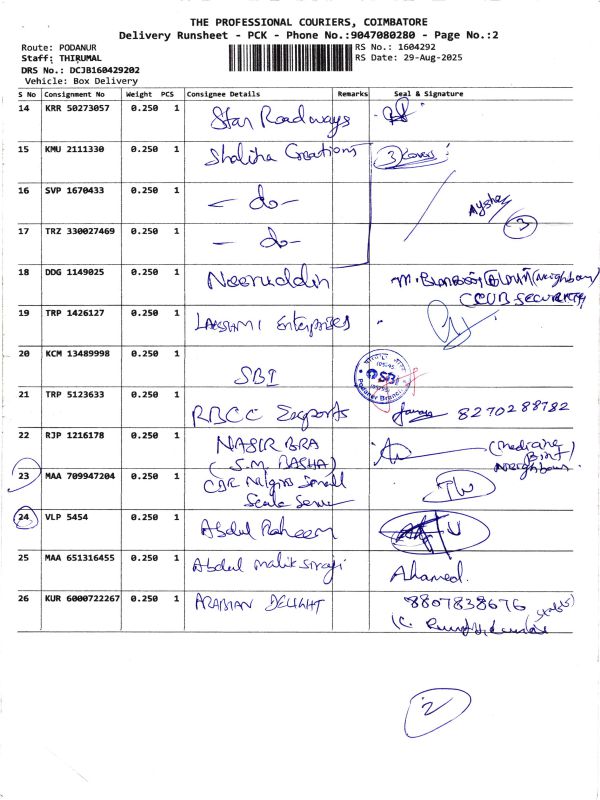 THE PROFESSIONAL COURIERS, COIMBATORE
Delivery Runsheet - PCK - Phone No.:9047080280 - Page No.:2
Route: PODANUR
Staff: THIRUMAL
DRS No.: DCJB160429202
Vehicle: Box Delivery
RS No.: 1604292
RS Date: 29-Aug-2025
S No Consignment No Weight PCS Consignee Details Remarks Seal & Signature
14 KRR 50273057 0.250 1 Star Roadways
15 KMU 2111330 0.250 1 Shaliha Creations 3 covers
16 SVP 1670433 0.250 1 - do - Aysha 3
17 TRZ 330027469 0.250 1 - do -
18 DDG 1149025 0.250 1 Neeruddin (Neighbour)
SECURITY
19 TRP 1426127 0.250 1 Lakshmi Enterprises
20 KCM 13489998 0.250 1 SBI SBI
Podanur Branch
21 TRP 5123633 0.250 1 RBCC Exports 8270288782
22 RJP 1216178 0.250 1 NASIR BRA (Medicine
(S.M. BASHA) Neighbour
23 MAA 709947204 0.250 1 Small
Scale
24 VLP 5454 0.250 1 Abdul Raheem
25 MAA 651316455 0.250 1 Abdul malik siraji Ahamed.
26 KUR 6000722267 0.250 1 ARABIAN DELIGHT 8807838676
K.
2